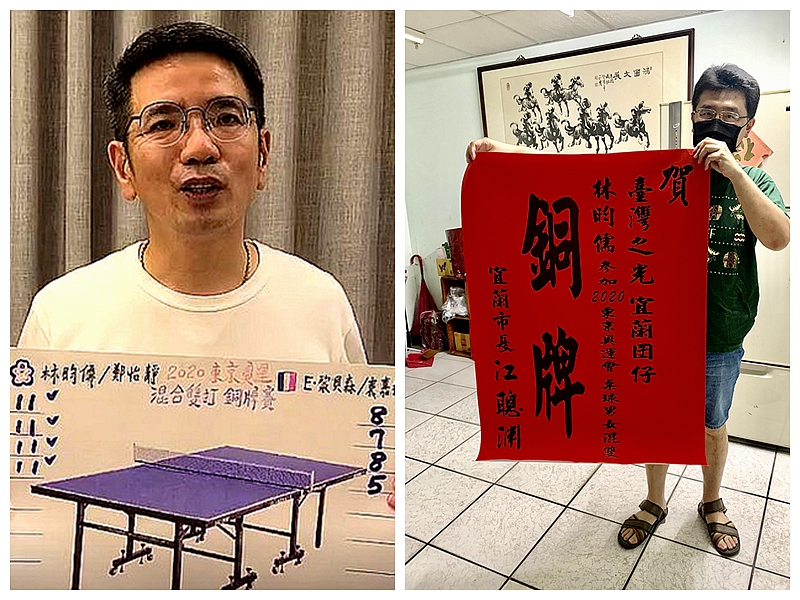 林昀儒/鄭怡靜
2020東京奧運
混合雙打 銅牌賽
11
11
11
11
8
7
8
5
賀
臺灣之光 宜蘭囝仔
林昀儒 參加2020東京奧運會 桌球男女混雙
銅牌
宜蘭市長 江聰淵